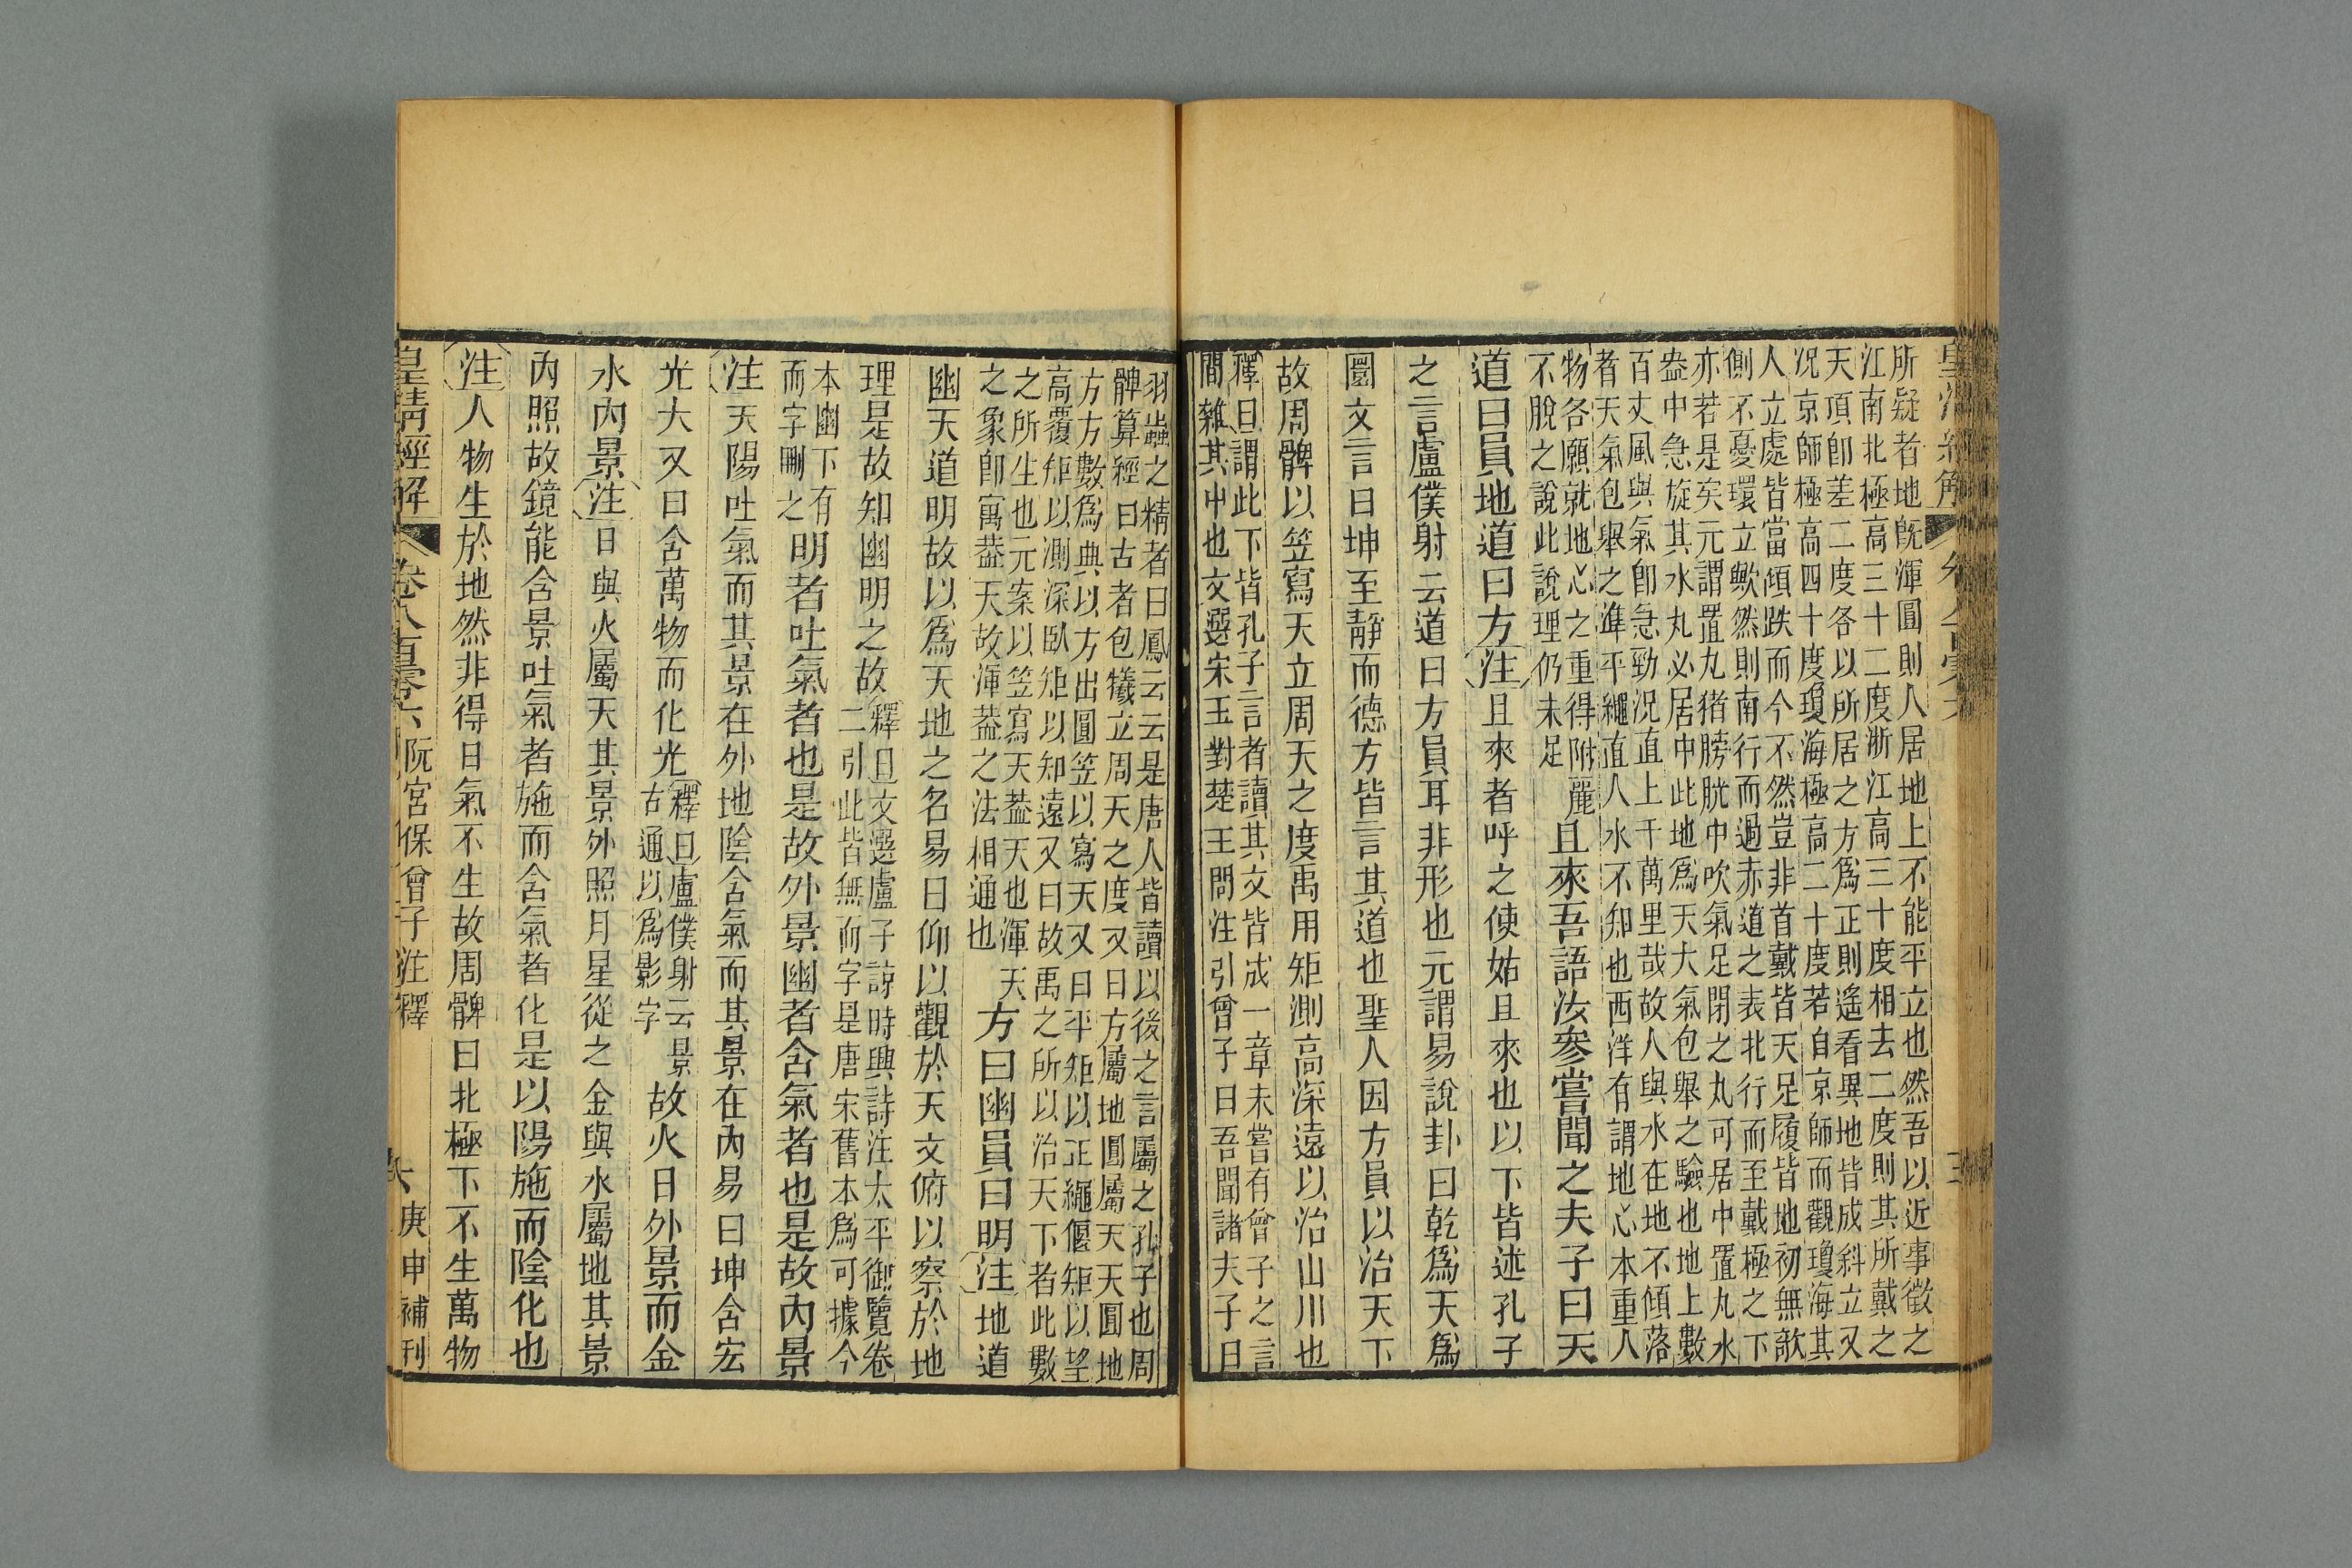 所疑者地旣渾圓則人居地上不能平立也然吾以近事徵之
江南北極高三十二度浙江高三十度相去二度則其所戴之
天頂卽差二度各以所居之方爲正則遙看異地皆成斜立又
况京師極高四十度瓊海極高二十度若自京師而觀瓊海其
人立處皆當傾跌而今不然豈非首戴皆天足履皆地初無欹
側不憂環立歟然則南行而過赤道之表北行而至戴極之下
亦若是矣元謂置丸猪膀胱中吹氣足閉之丸可居中置丸水
盎中急旋其水丸必居中此地爲天大氣包舉之驗也地上數
百丈風與氣卽急勁況直上千萬里哉故人與水在地不傾落
者天氣包舉之準平繩直人水不知也西洋有謂地心本重人
物各願就地心之重得附麗
不脫之說此說理仍未足
且來吾語汝參嘗聞之夫子曰天
道曰員地道曰方注且來者呼之使姑且來也以下皆述孔子
之言盧僕射云道曰方員耳非形也元謂易說卦曰乾爲天爲
圜文言曰坤至靜而德方皆言其道也聖人因方員以治天下
故周髀以笠寫天立周天之度禹用矩測高深遠以治山川也
釋曰謂此下皆孔子言者讀其文皆成一章未嘗有曾子之言
間雜其中也文選宋玉對楚王問注引曾子曰吾聞諸夫子曰
羽蟲之精者曰鳳云云是唐人皆讀以後之言屬之孔子也周
髀算經曰古者包犧立周天之度又曰方屬地圓屬天天圓地
方方數爲典以方出圓笠以寫天又曰平矩以正繩偃矩以望
高覆矩以測深臥矩以知遠又曰故禹之所以治天下者此數
之所生也元案以笠寫天葢天也渾天
之象卽寓葢天故渾葢之法相通也
方曰幽員曰明注地道
幽天道明故以爲天地之名易曰仰以觀於天文俯以察於地
理是故知幽明之故
釋曰文選盧子諒時興詩注太平御覽卷
二引此皆無而字是唐宋舊本爲可據今
本幽下有
而字刪之
明者吐氣者也是故外景幽者含氣者也是故內景
注天陽吐氣而其景在外地陰含氣而其景在內易曰坤含宏
光大又曰含萬物而化光
釋曰盧僕射云景
古通以爲影字
故火日外景而金
水內景注日與火屬天其景外照月星從之金與水屬地其景
內照故鏡能含景吐氣者施而含氣者化是以陽施而陰化也
注人物生於地然非得日氣不生故周髀曰北極下不生萬物
皇清經解 卷八百零六 阮宮保曾子注釋 六 庚申補刊